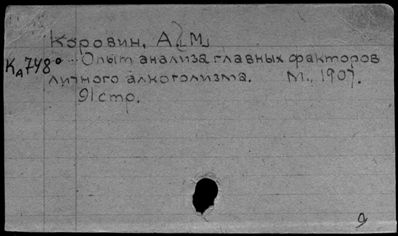 Коровин, А[М]
Кд748° Опыт анализа главных факторов
личного алкоголизма. М., 1907.
91 стр.